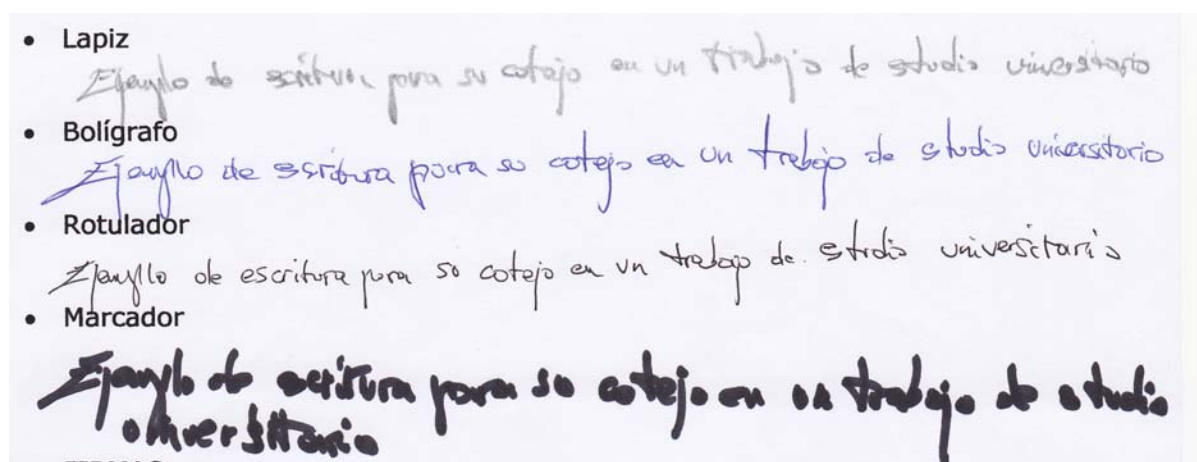 • Lapiz
Ejemplo de escritura para su cotejo en un trabajo de estudio universitario
• Bolígrafo
Ejemplo de escritura para su cotejo en un trabajo de estudio universitario
• Rotulador
Ejemplo de escritura para su cotejo en un trabajo de estudio universitario
• Marcador
Ejemplo de escritura para su cotejo en un trabajo de estudio
universitario